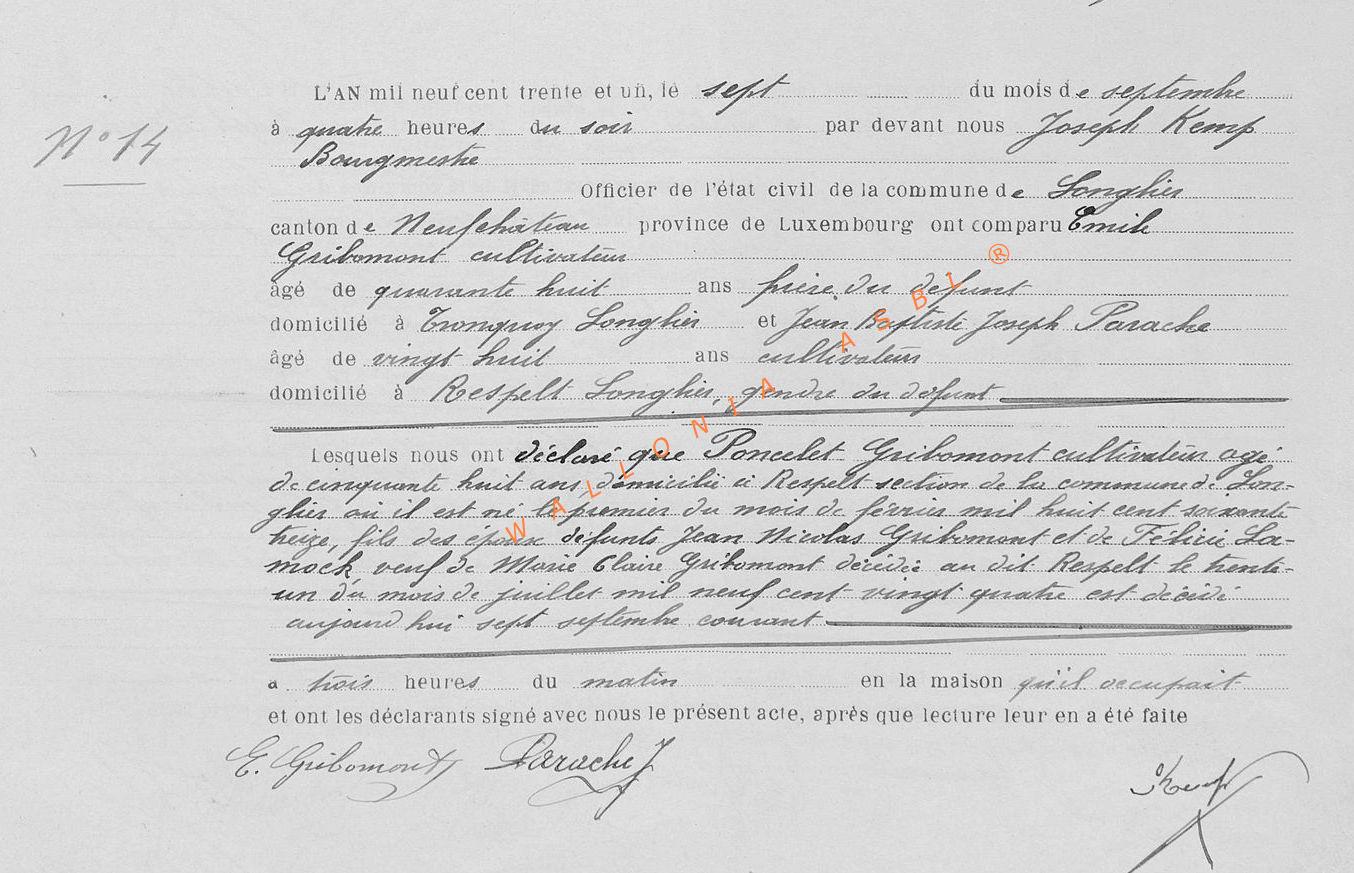 L'AN mil neuf cent trente et un, le sept du mois de septembre
N° 14
à quatre heures du soir par devant nous Joseph Kemp
Bourgmestre
Officier de l'état civil de la commune de Longlier
canton de Neufchâteau province de Luxembourg ont comparu Emile
Gribomont cultivateur
âgé de quarante huit ans frère du défunt
domicilié à Tronquoy Longlier et Jean Baptiste Joseph Parache
âgé de vingt huit ans cultivateur
domicilié à Respelt Longlier, gendre du défunt
Lesquels nous ont déclaré que Poncelet Gribomont cultivateur agé
de cinquante huit ans, domicilié à Respelt section de la commune de Lon-
glier où il est né le premier du mois de février mil huit cent soixante
treize, fils des époux défunts Jean Nicolas Gribomont et de Félicie La-
mock, veuf de Marie Claire Gribomont décédée au dit Respelt le trente-
un du mois de juillet mil neuf cent vingt quatre est décédé
aujourd'hui sept septembre courant
à trois heures du matin en la maison qu'il occupait
et ont les déclarants signé avec nous le présent acte, après que lecture leur en a été faite
E. Gribomont Parache J
Kemp
WALLONIA ASBL ®